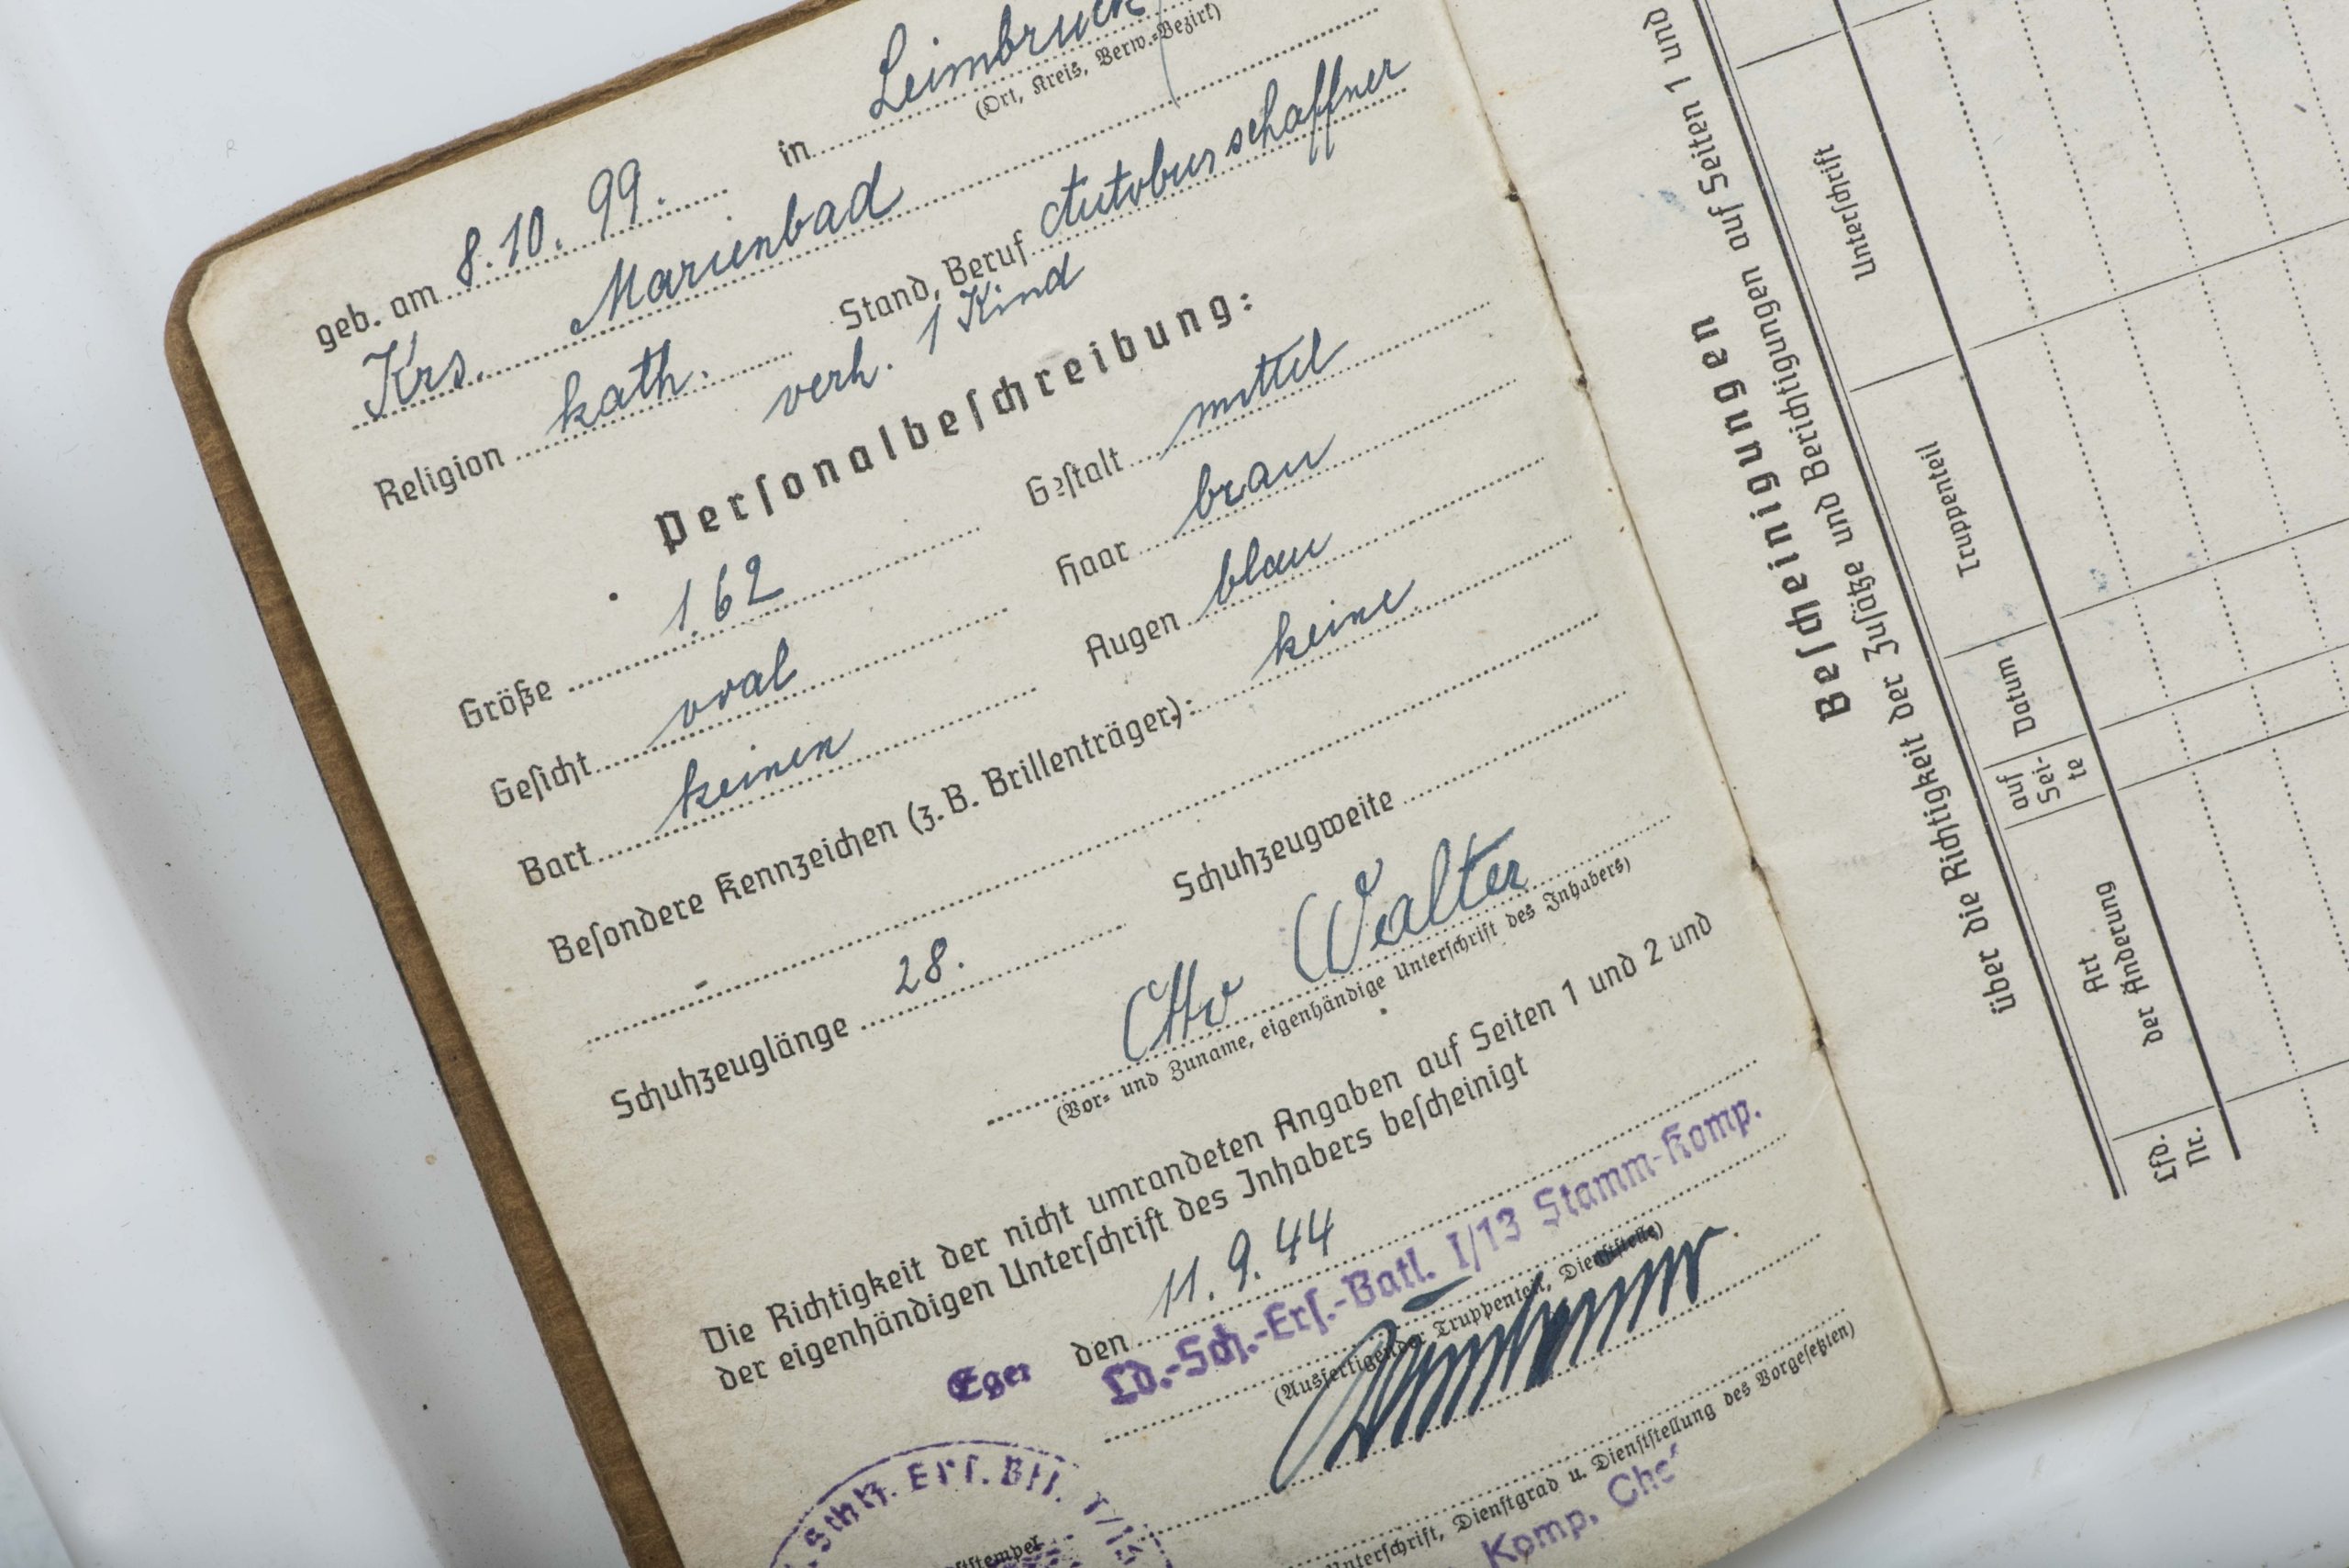 geb. am 8. 10. 99. in Leimbruck
(Ort, Kreis, Verw.-Bezirk)
Krs. Marienbad
Religion kath. Stand, Beruf Autobusschaffner
verh. 1 Kind
Personalbeschreibung:
Größe 1.62 Gestalt mittel
Gesicht oval Haar braun
Bart keinen Augen blau
Besondere Kennzeichen (z. B. Brillenträger): keine
Schuhzeuglänge 28. Schuhzeugweite
Otto Walter
(Vor- und Zuname, eigenhändige Unterschrift des Inhabers)
Die Richtigkeit der nicht umrandeten Angaben auf Seiten 1 und 2 und
der eigenhändigen Unterschrift des Inhabers bescheinigt
Eger den 11. 9. 44
Ld.-Sch.-Ers.-Batl. I/13 Stamm-Komp.
(Ausfertigender Truppenteil, Dienststelle)
Unterschrift, Dienstgrad u. Dienststellung des Vorgesetzten)
Komp. Che
Schtz. Ers. Btl. I/13
Bescheinigungen
über die Richtigkeit der Zusätze und Berichtigungen auf Seiten 1 und
Lfd. Nr.
Art der Änderung
auf Sei-te
Datum
Truppenteil
Unterschrift